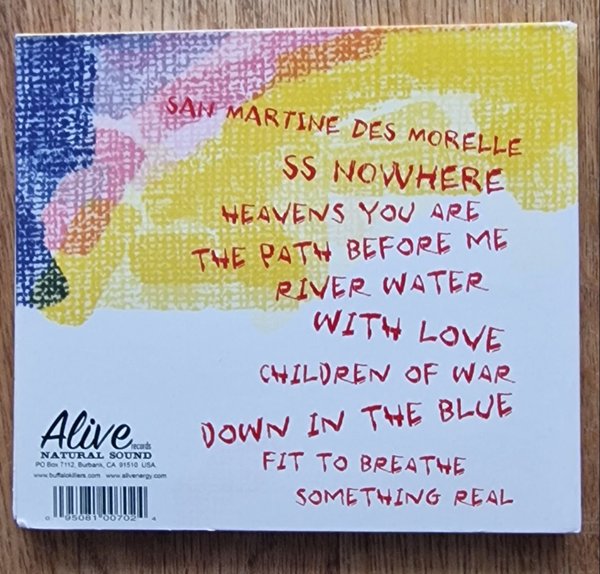 SAN MARTINE DES MORELLE
SS NOWHERE
HEAVENS YOU ARE
THE PATH BEFORE ME
RIVER WATER
WITH LOVE
CHILDREN OF WAR
DOWN IN THE BLUE
FIT TO BREATHE
SOMETHING REAL
Alive records
NATURAL SOUND
PO Box 7112, Burbank, CA 91510 USA.
www.buffalokillers.com www.alivenergy.com
0 95081 00702 4